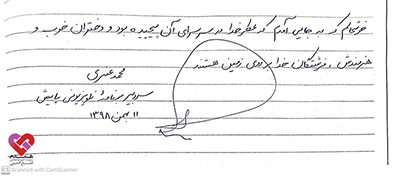 خوشحالم که به جایی آمدم که عطر خدا در سرسرای آن پیچیده بود و دختران خوب و
هنرمندش، فرشتگان خدا روی زمین هستند
محمد عسری
سردبیر برنامه تلویزیونی پایش
۱۱ بهمن ۱۳۹۸
Scanned with CamScanner